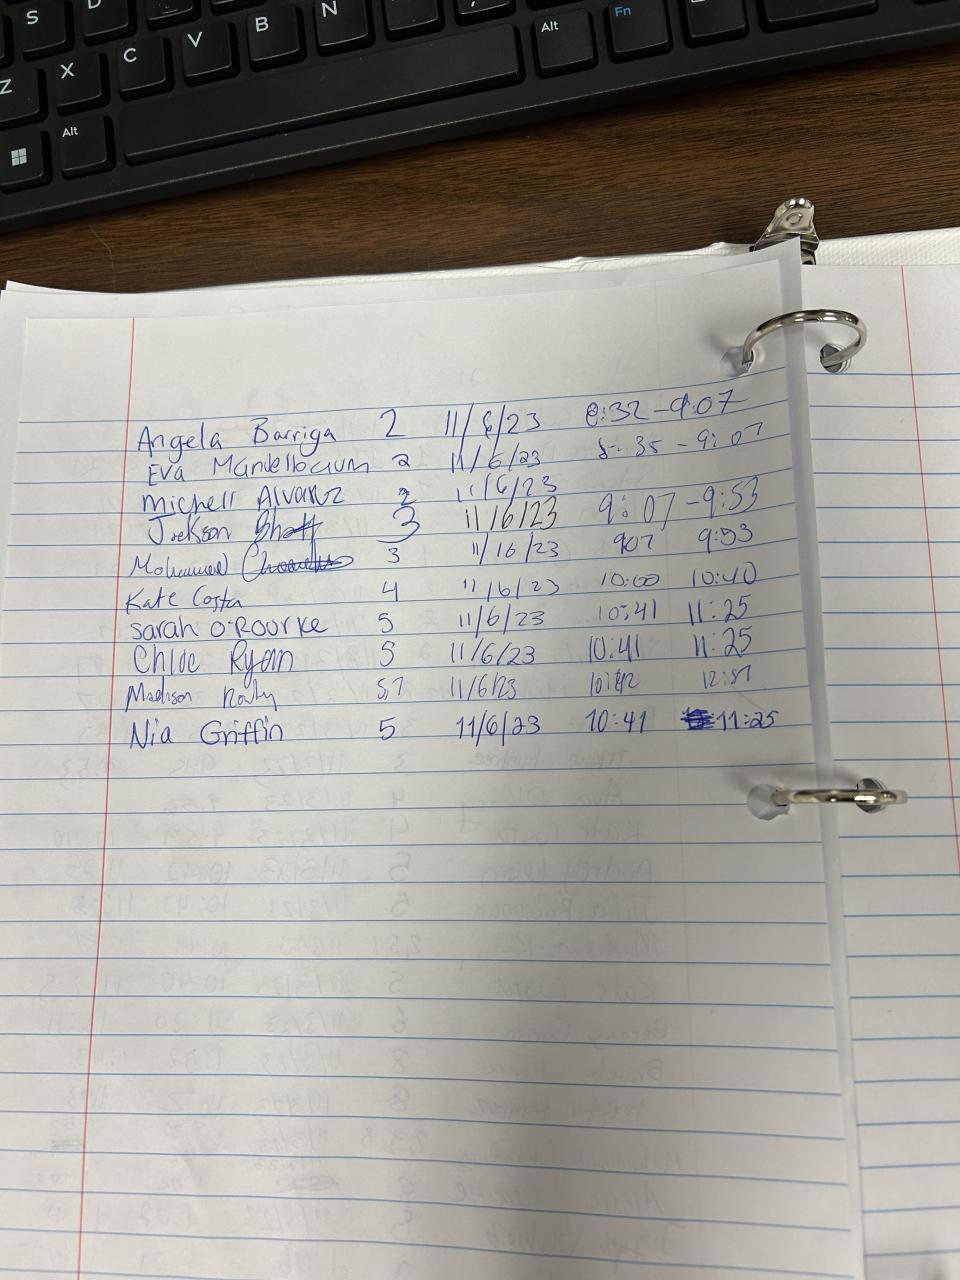 S D N
Z X C V B Alt Fn
Alt
Angela Barriga 2 11/6/23 8:32 - 9:07
Eva Mandelbaum 2 11/6/23 8:35 - 9:07
Michell Alvarez 2 11/6/23
Jackson Bhatt 3 11/6/23 9:07 - 9:53
Mohammed 3 11/16/23 907 9:53
Kate Costa 4 11/6/23 10:00 10:40
Sarah O'Rourke 5 11/6/23 10:41 11:25
Chloe Ryan 5 11/6/23 10:41 11:25
Madison 5,7 11/6/23 10:42
Nia Griffin 5 11/6/23 10:41 11:25